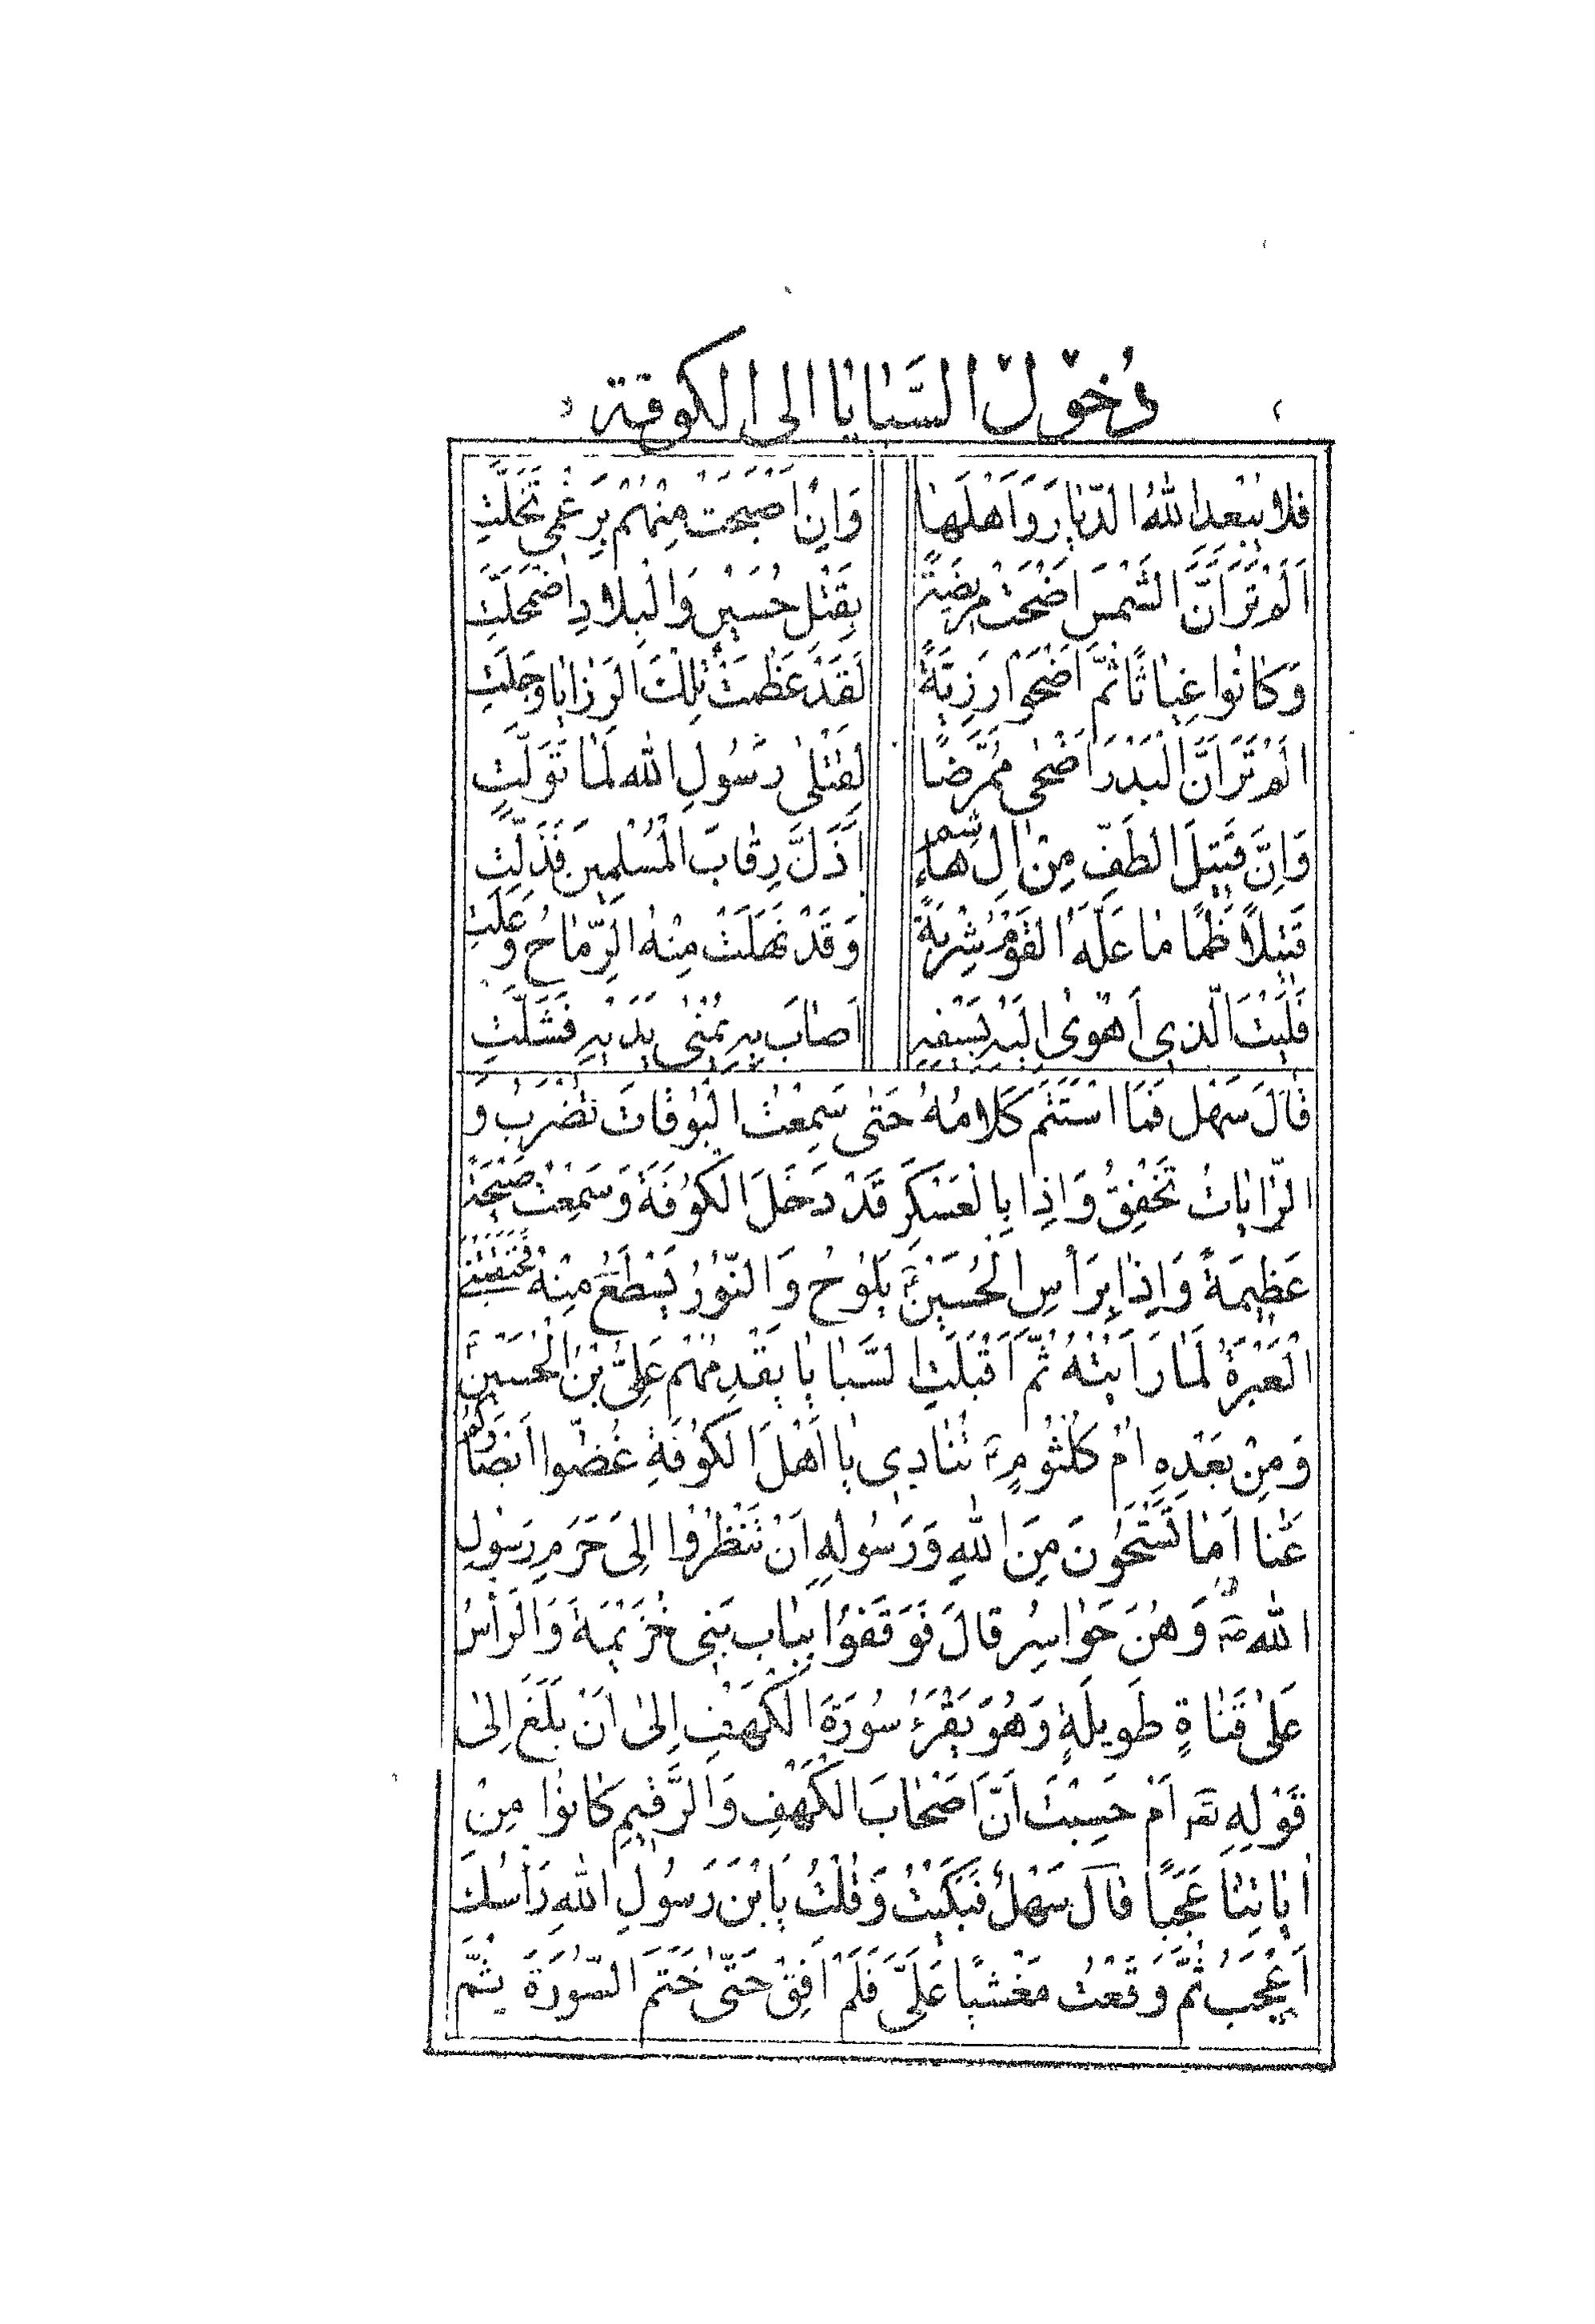 دُخُوْلُ السَّبَايَا اِلَى الْكُوْفَةِ
فَلا يُبْعِدِ اللهُ الدِّيَارَ وَاَهْلَهَا وَاِنْ اَصْبَحَتْ مِنْهُمْ بِرَغْمِي تَخَلَّتِ
اَلَمْ تَرَ اَنَّ الشَّمْسَ اَضْحَتْ مَرِيضَةً بِقَتْلِ حُسَيْنٍ وَالْبِلادِ اضْمَحَلَّتِ
وَكَانُوا غِيَاثًا ثُمَّ اَضْحَوْا رَزِيَّةً لَقَدْ عَظُمَتْ تِلْكَ الرَزَايَا وَجَلَّتِ
اَلَمْ تَرَ اَنَّ الْبَدْرَ اَضْحٰى مُمَرَّضًا لِقَتْلٰى رَسُولِ اللهِ لَمَّا تَوَلَّتِ
وَاِنَّ قَتِيلَ الطَفِّ مِنْ اٰلِ هَاشِمٍ اَذَلَّ رِقَابَ الْمُسْلِمِينَ فَذَلَّتِ
قَتِيلاً ظَمًا مَا عَلَّهُ الْقَوْمُ شِرْبَةً وَقَدْ نَهِلَتْ مِنْهُ الرِّمَاحُ وَعَلَّتِ
فَلَيْتَ الَّذِي اَهْوٰى اِلَيْهِ بِسَيْفِهِ اَصَابَ بِهِ يُمْنٰى يَدَيْهِ فَشَلَّتِ
قَالَ سَهْل فَمَا اسْتَتَمَّ كَلامُهُ حَتّٰى سَمِعْتُ الْبُوْقَاتَ تُضْرَبُ وَ
الرَّايَاتُ تَخْفِقُ وَاِذَا بِالْعَسْكَرِ قَدْ دَخَلَ الْكُوْفَةَ وَسَمِعْتُ صَيْحَةً
عَظِيمَةً وَاِذَا بِرَأْسِ الْحُسَيْنِ ع يَلُوْحُ وَالنُّوْرُ يَسْطَعُ مِنْهُ فَخَنَقَتْنِي
الْعَبْرَةُ لَمَّا رَاَيْتُهُ ثُمَّ اَقْبَلَتِ السَّبَايَا يَقْدِمُهُمْ عَلِيُّ بْنُ الْحُسَيْنِ ع
وَمِنْ بَعْدِهِ اُمُّ كُلْثُوْمٍ ع تُنَادِي يَا اَهْلَ الْكُوْفَةِ غُضُّوا اَبْصَارَكُمْ
عَنَّا اَمَا تَسْتَحُوْنَ مِنَ اللهِ وَرَسُولِهِ اَنْ تَنْظُرُوْا اِلٰى حَرَمِ رَسُولِ
اللهِ ص وَهُنَّ حَوَاسِرُ قَالَ فَوَقَفُوْا بِبَابِ بَنِي خُزَيْمَةَ وَالرَأْسُ
عَلٰى قَنَاةٍ طَوِيلَةٍ وَهُوَ يَقْرَءُ سُورَةَ الْكَهْفِ اِلٰى اَنْ بَلَغَ اِلٰى
قَوْلِهِ تع اَمْ حَسِبْتَ اَنَّ اَصْحَابَ الْكَهْفِ وَالرَّقِيمِ كَانُوْا مِنْ
اٰيَاتِنَا عَجَبًا قَالَ سَهْلٌ فَبَكَيْتُ وَقُلْتُ يَابْنَ رَسُولِ اللهِ رَاْسُكَ
اَعْجَبُ ثُمَّ وَقَعْتُ مَغْشِيًّا عَلَيَّ فَلَمْ اَفِقْ حَتّٰى خَتَمَ السُّورَةَ ثُمَّ